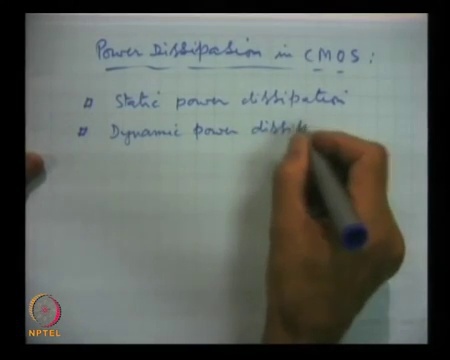 Power Dissipation in CMOS:
Static power dissipation
Dynamic power dissi
NPTEL